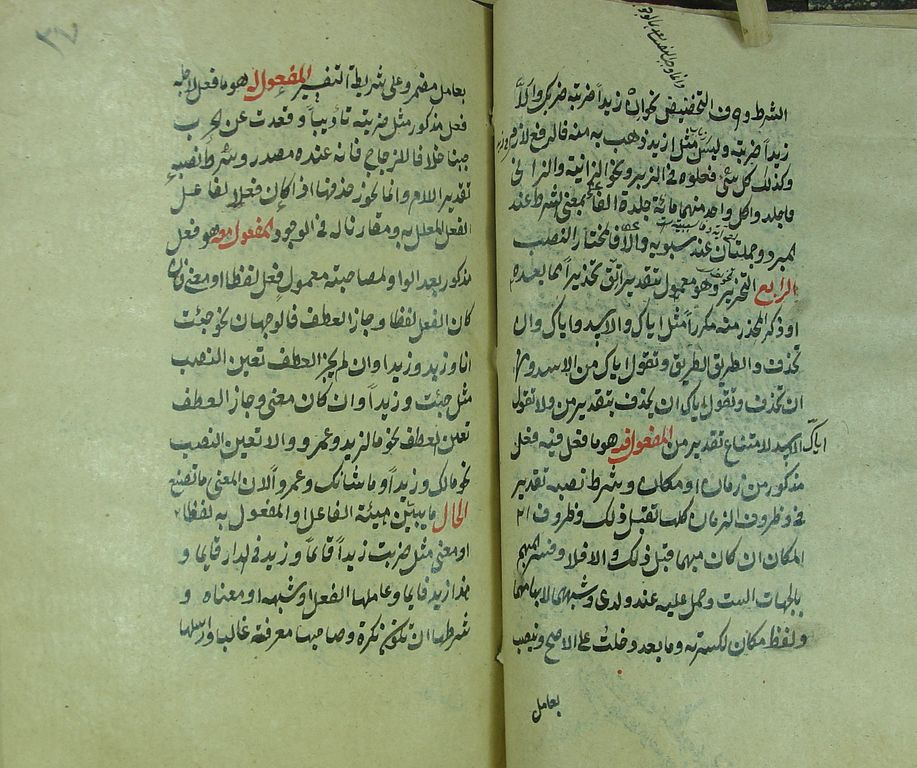 وانما وجب النصب بعد
الشرط وحرف التحضيض نحو ان زيدا ضربته ضربك والا
زيدا ضربته وليس مثل ازيد ذهب به منه فالرفع لازم
وكذلك كل شئ فعلوه في الزبر ونحو الزانية والزاني
فاجلدوا كل واحد منهما مائة جلدة الفاء بمعنى الشرط عند
المبرد وجملتان عند سيبويه والا فالمختار النصب
الرابع التحذير وهو معمول بتقدير اتق تحذيرا مما بعده
او ذكر المحذر منه مكررا مثل اياك والاسد واياك وان
تحذف والطريق الطريق وتقول اياك من الاسد ومن
ان تحذف وتقول اياك ان تحذف بتقدير من ولا تقول
اياك الاسد لامتناع تقدير من المفعول فيه هو ما فعل فيه فعل
مذكور من زمان او مكان وشرط نصبه تقدير
في وظروف الزمان كلها تقبل ذلك وظروف
المكان ان كان مبهما قبل ذلك والا فلا وفسر المبهم
بالجهات الست وحمل عليه عند ولدى وشبههما لابهامهما
ولفظ مكان لكثرته وما بعد دخلت على الاصح وينصب
بعامل
٣٧
بعامل مضمر وعلى شريطة التفسير المفعول له هو ما فعل لاجله
فعل مذكور مثل ضربته تأديبا وقعدت عن الحرب
جبنا خلافا للزجاج فانه عنده مصدر وشرط نصبه
تقدير اللام وانما يجوز حذفها اذا كان فعلا لفاعل
الفعل المعلل به ومقارنا له في الوجود المفعول معه هو فعل
مذكور بعد الواو لمصاحبة معمول فعل لفظا او معنى فان
كان الفعل لفظا وجاز العطف فالوجهان نحو جئت
انا وزيد وزيدا وان لم يجز العطف تعين النصب
مثل جئت وزيدا وان كان معنى وجاز العطف
تعين العطف نحو ما لزيد وعمرو والا تعين النصب
نحو مالك وزيدا وما شانك وعمروا لان المعنى ما تصنع
الحال ما يبين هيئة الفاعل او المفعول به لفظا
او معنى مثل ضربت زيدا قائما وزيد في الدار قائما و
هذا زيد قايما وعاملها الفعل او شبهه او معناه و
شرطها ان تكون نكرة وصاحبها معرفة غالبا وارسلها